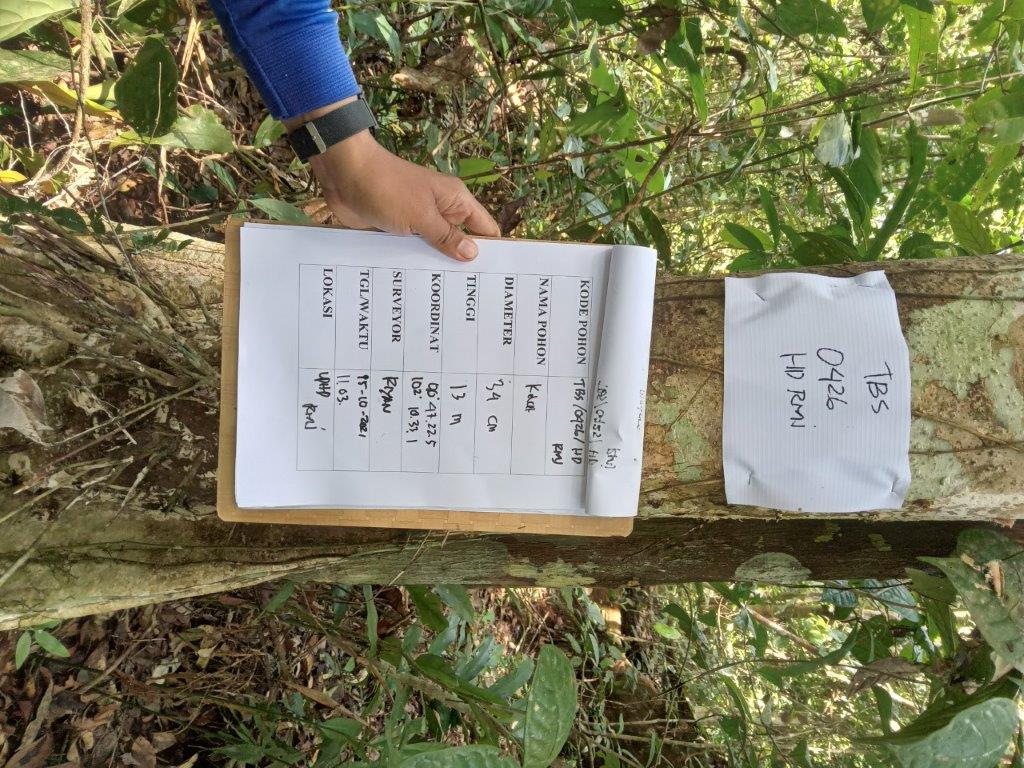 TBS
0426
HD RMJ
KODE POHON TBS/0426/ HD
RMJ
NAMA POHON
DIAMETER 34 CM
TINGGI 13 M
KOORDINAT 00° 47.22.5
102° 10.33.1
SURVEYOR RIYAN
TGL/WAKTU 15-10-2021
11.03.
LOKASI LPHD
RMJ